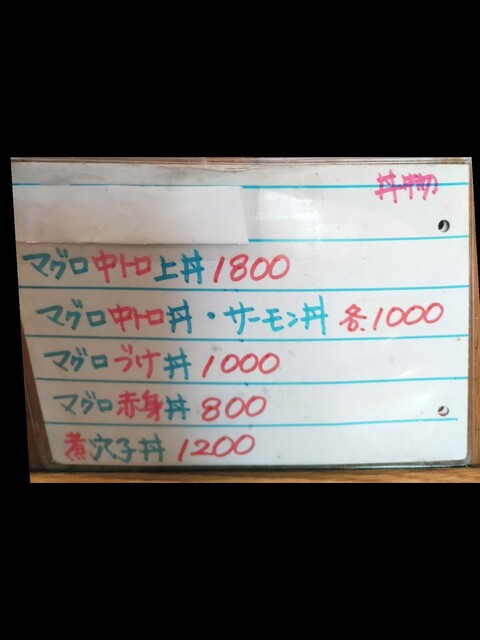 丼物
マグロ中トロ上丼 1800
マグロ中トロ丼・サーモン丼 各1000
マグロづけ丼 1000
マグロ赤身丼 800
煮穴子丼 1200